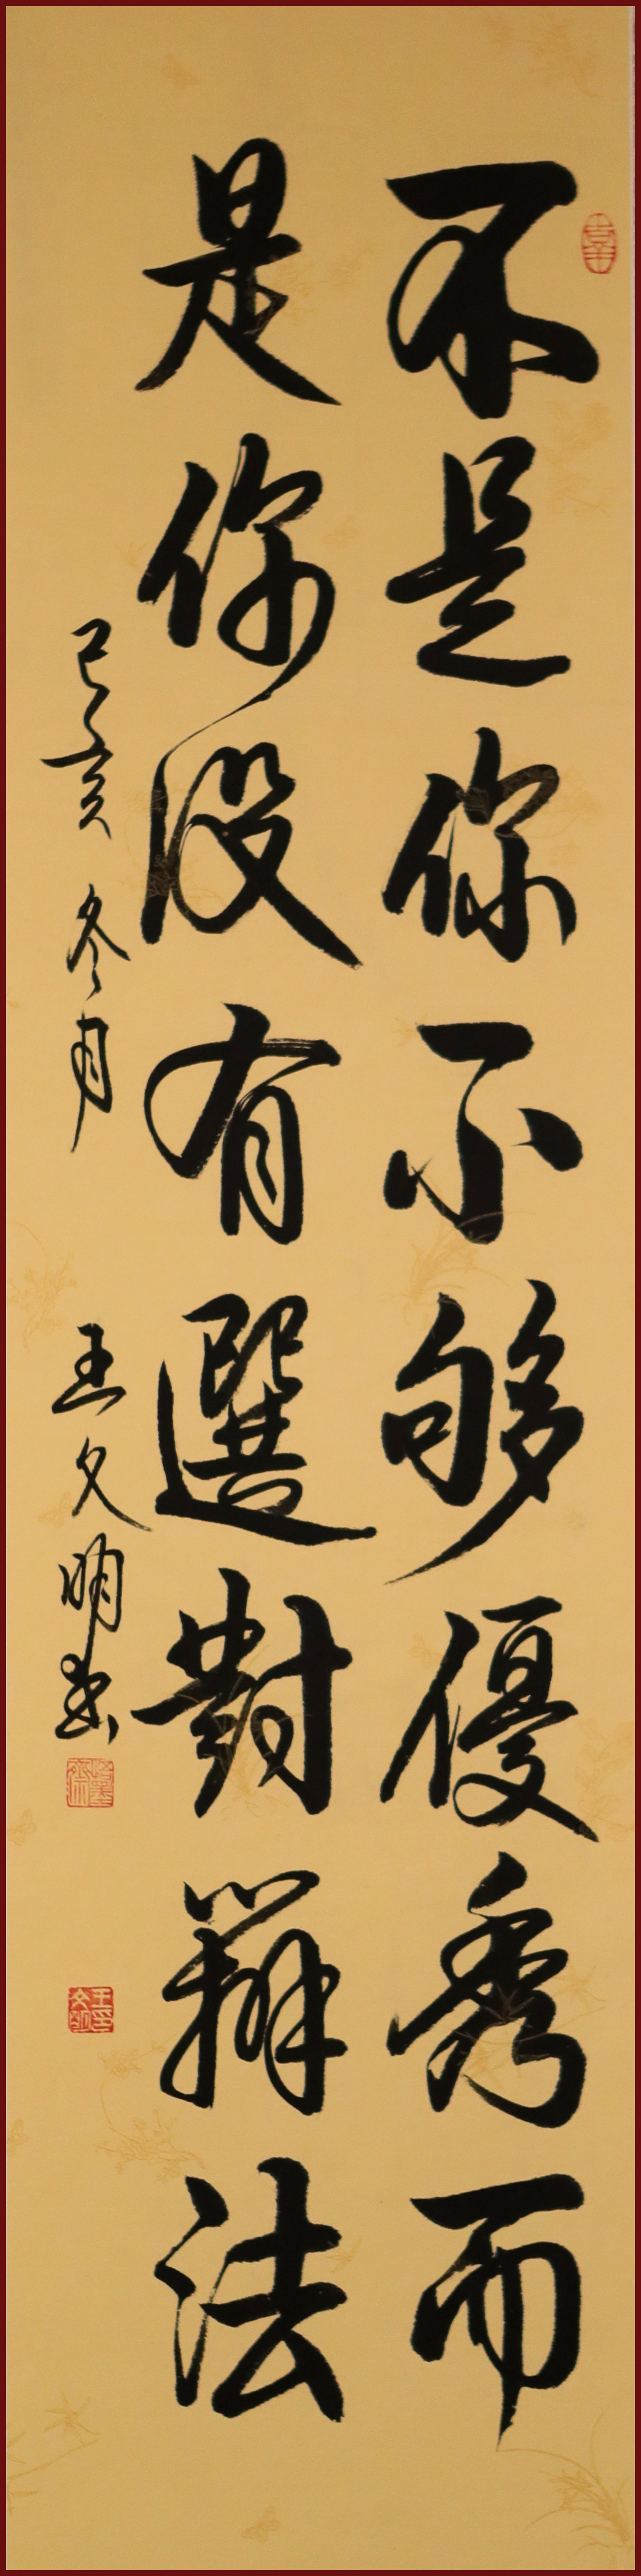 不是你不够優秀而
是你没有選對辦法
己亥冬月 王文明书